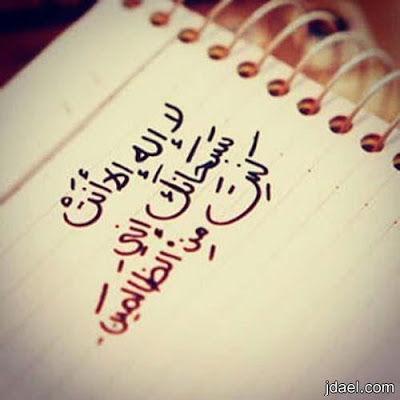 لا إله إلا أنَتْ
سبحَانكَ إنيِ
كنتَ مِنِ الظالمَين
jdael.com